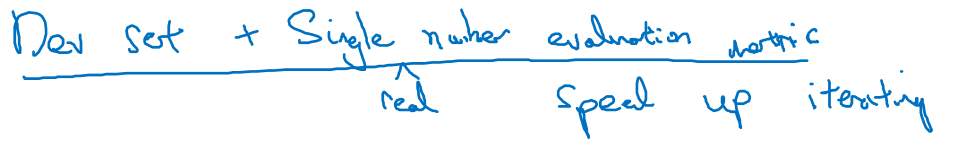 Dev set + Single number evaluation metric
real speed up iterating